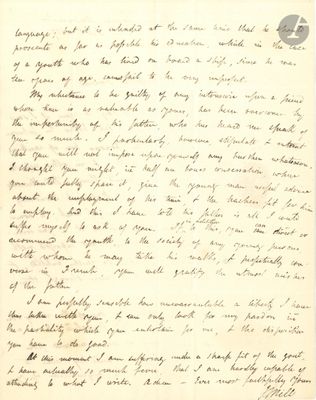 language; but it is intended at the same time that he should
prosecute as far as possible his education, which in the case
of a youth who has lived on board a ship, since he was
ten years of age, cannot fail to be very imperfect.
My reluctance to be guilty of any intrusion upon a friend
whose time is as valuable as yours, has been overcome by
the importunity of his father who has heard me speak of
you so much. I particularly, however stipulate & intreat
that you will not impose upon yourself any burthen whatsoever.
I thought you might in half an hours conversation when
you could fully spare it, give the young man useful advice
about the employment of his time, & the teachers fit for him
to employ. And this I have told his father is all I could
suffer myself to ask of you. If, in addition you can direct or
recommend the youth, to the society of any young persons
with whom he may take his walks, & perpetually con
verse in French, you will gratify the utmost wishes
of the father.
I am perfectly sensible how unwarrantable a liberty I have
thus taken with you, & can only look for my pardon in
the partiality which you entertain for me, & the disposition
you have to do good.
At this moment I am suffering under a sharp fit of the gout,
& have actually so much fever that I am hardly capable of
attending to what I write. Adieu - Ever most faithfully Yours
J Mill